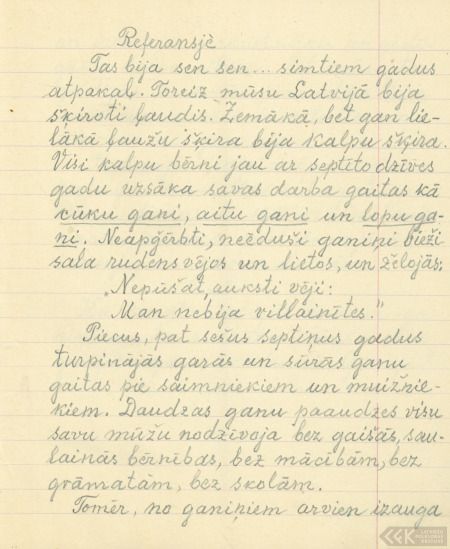 Referansjē
Tas bija sen sen... simtiem gadus
atpakaļ. Toreiz mūsu Latvijā bija
šķiroti ļaudis. Zemākā, bet gan lie-
lākā ļaužu šķira bija kalpu šķira.
Visi kalpu bērni jau ar septīto dzīves
gadu uzsāka savas darba gaitas kā
cūku gani, aitu gani un lopu ga-
ni. Neapģērbti, neēduši ganiņi bieži
sala rudens vējos un lietos, un žēlojās:
„Nepūšat, auksti vēji:
Man nebija villainītes."
Piecus, pat sešus septiņus gadus
turpinājās garās un sūrās ganu
gaitas pie saimniekiem un muižnie-
kiem. Daudzas ganu paaudzes visu
savu mūžu nodzīvoja bez gaišās, sau-
lainās bērnības, bez mācībām, bez
grāmatām, bez skolām.
Tomēr, no ganiņiem arvien izauga
LATVIEŠU
FOLKLORAS
KRĀTUVE